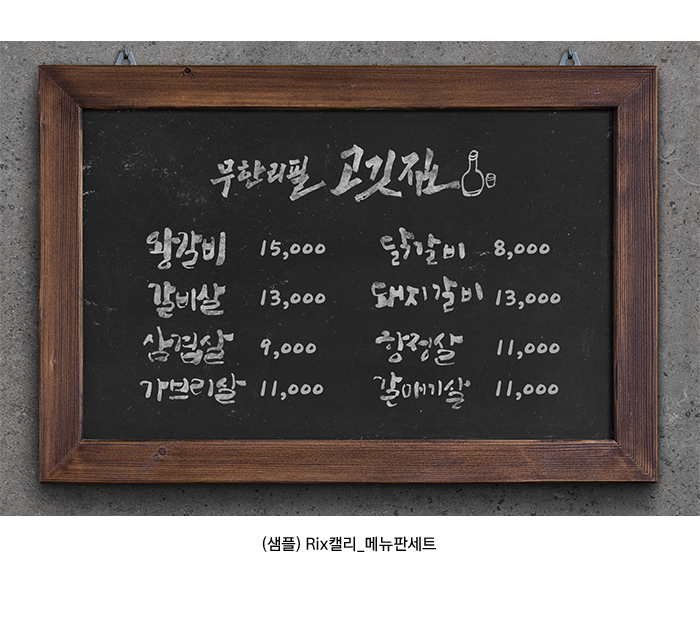 무한리필 고깃집
왕갈비 15,000 닭갈비 8,000
갈비살 13,000 돼지갈비 13,000
삼겹살 9,000 항정살 11,000
가브리살 11,000 갈매기살 11,000
(샘플) Rix캘리_메뉴판세트